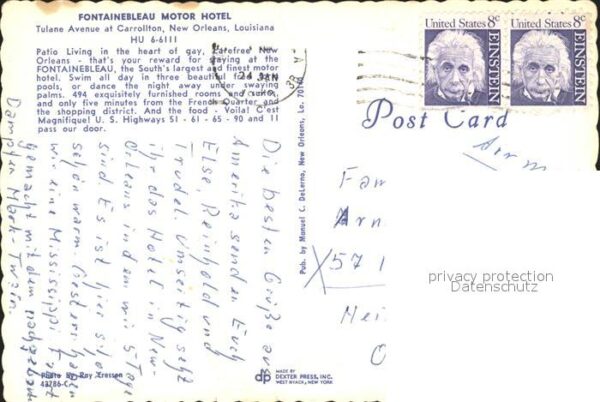 FONTAINEBLEAU MOTOR HOTEL
Tulane Avenue at Carrollton, New Orleans, Louisiana
HU 6-6111
Patio Living in the heart of gay, carefree New
Orleans - that's your reward for staying at the
FONTAINEBLEAU, the South's largest and finest motor
hotel. Swim all day in three beautiful fun
pools, or dance the night away under swaying
palms. 494 exquisitely furnished rooms and suites,
and only five minutes from the French Quarter and
the shopping district. And the food - Voila! C'est
Magnifique! U. S. Highways 51 - 61 - 65 - 90 and 11
pass our door.
United States 8c
EINSTEIN
United States 8c
EINSTEIN
24 JAN
Post Card
Die besten Grüße aus
Amerika senden Euch
Else, Reinhold und
Trudel. Umseitig seht
ihr das Hotel in New-
Orleans in dem wir 5 Tage
sind. Es ist hier
schön warm. Gestern haben
wir eine Mississippi Fahrt
gemacht mit dem
Dampfer Mark-Twain
Pub. by Manuel C. DeLerno, New Orleans, La. 701
Fam
Arn
571
Mei
privacy protection
Datenschutz
Photo by Ray Cresson
43786-C
dp
MADE BY
DEXTER PRESS, INC.
WEST NYACK, NEW YORK